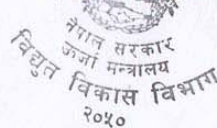 नेपाल सरकार
ऊर्जा मन्त्रालय
विद्युत विकास विभाग
२०५०